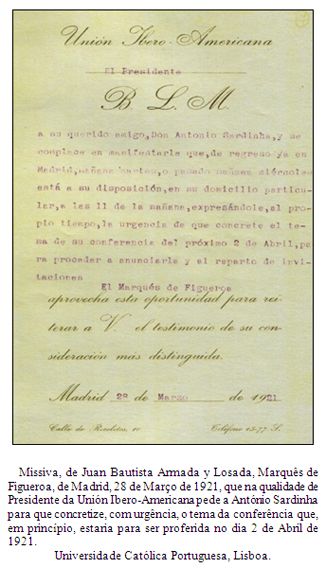 Unión Ibero-Americana
El Presidente
B. L. M.
a su querido amigo, Don Antonio Sardinha, y se
complace en manifestarle que, de regreso ya en
Madrid, mañana martes, o pasado mañana miércoles
está a su disposición, en su domicilio particu-
lar, a les 11 de la mañana, expresándole, al pro-
pio tiempo, la urgencia de que concrete el te-
ma de su conferencia del próximo 2 de Abril, pa-
ra proceder a anunciarle y al reparto de invi-
taciones
El Marqués de Figueroa
aprovecha esta oportunidad para rei-
terar a V. el testimonio de su con-
sideración más distinguida.
Madrid 28 de Marzo de 1921
Calle de Recoletos, 10 Teléfono 13-77 S.
Missiva, de Juan Bautista Armada y Losada, Marquês de
Figueroa, de Madrid, 28 de Março de 1921, que na qualidade de
Presidente da Unión Ibero-Americana pede a António Sardinha
para que concretize, com urgência, o tema da conferência que,
em princípio, estaria para ser proferida no dia 2 de Abril de
1921.
Universidade Católica Portuguesa, Lisboa.